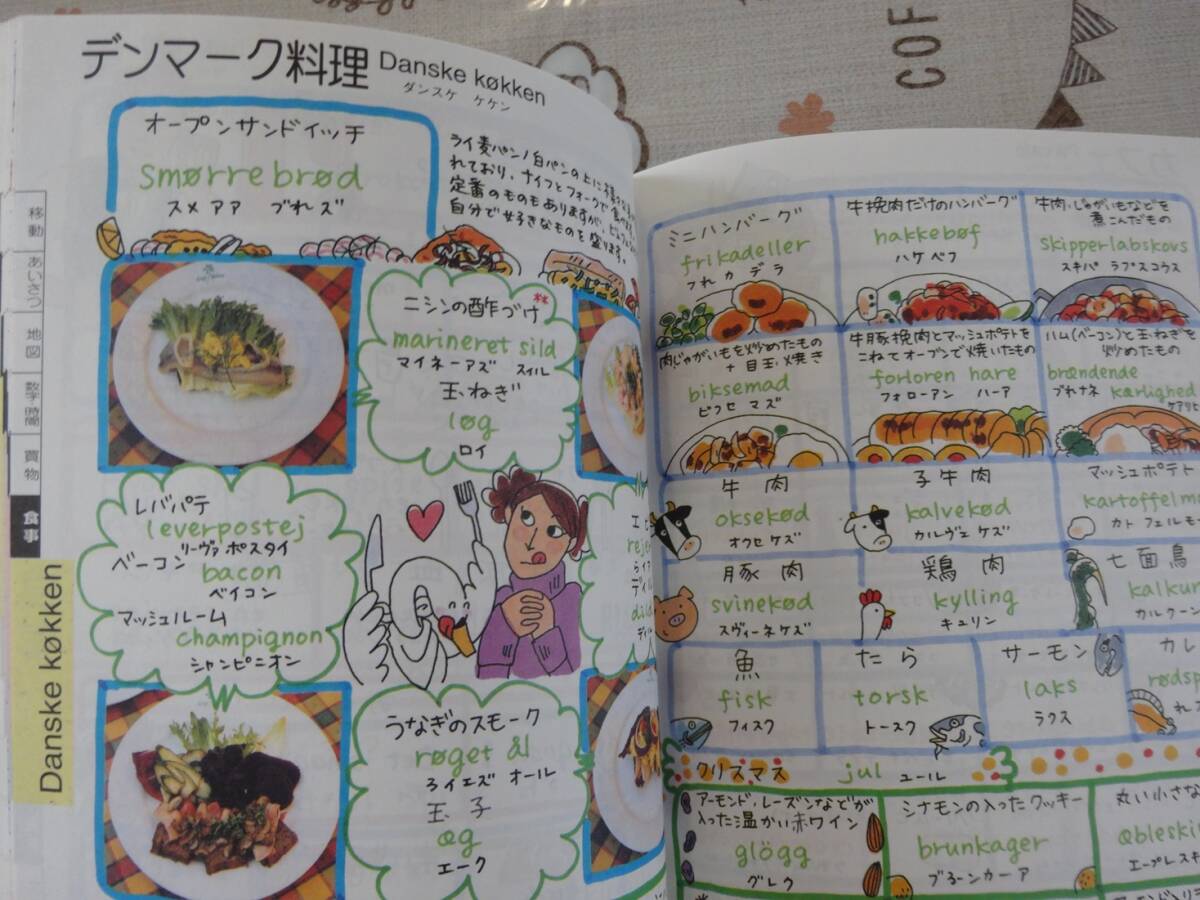 COF
デンマーク料理 Danske køkken
ダンスケ ケケン
オープンサンドイッチ
smørrebrød
スメアア ブれズ
ライ麦パン/白パンの上に
れており、ナイフとフォークで
定番のものもありますが、
自分で好きなものを盛ります。
移動
あいさつ
地図
数字 時間
買物
食事
Danske køkken
ニシンの酢づけ
marineret sild
マイネーアズ スィル
玉ねぎ
løg
ロイ
レバパテ
leverpostej
リーヴァ ポスタイ
ベーコン
bacon
ベイコン
マッシュルーム
champignon
シャンピニオン
うなぎのスモーク
røget ål
ろイエズ オール
玉子
æg
エーク
ミニハンバーグ
frikadeller
フれカデラ
牛挽肉だけのハンバーグ
hakkebøf
ハケベフ
牛肉、じゃがいもなどを
煮こんだもの
skipperlabskovs
スキパ ラプスコウス
肉じゃがいもを炒めたもの
+目玉焼き
biksemad
ビクセ マズ
牛豚挽肉とマッシュポテトを
こねてオーブンで焼いたもの
forloren hare
フォローアン ハーア
ハム(ベーコン)と玉ねぎを
炒めたもの
brændende
ブれナネ kærlighed
牛肉
oksekød
オクセケズ
子牛肉
kalvekød
カルヴェケズ
マッシュポテト
kartoffelm
カトフェルモ
豚肉
svinekød
スヴィーネケズ
鶏肉
kylling
キュリン
七面鳥
kalkun
カルクーン
魚
fisk
フィスク
たら
torsk
トースク
サーモン
laks
ラクス
カレ
rødsp
クリスマス jul ユール
アーモンド、レーズンなどが
入った温かい赤ワイン
glögg
グレク
シナモンの入ったクッキー
brunkager
ブるーンカーア
丸い小さな
æbleski
エーブレスキ